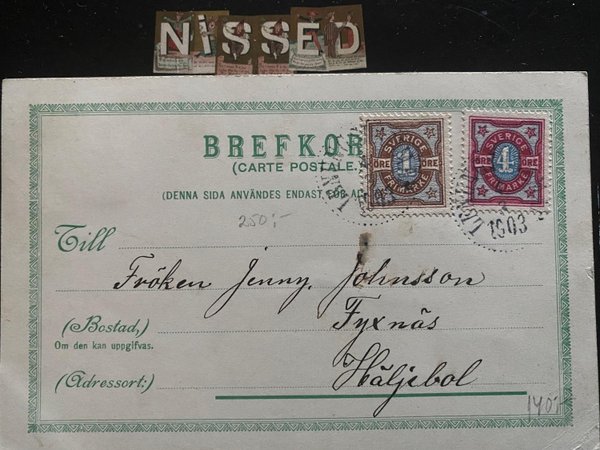 NiSSED
BREFKOR
(CARTE POSTALE.
(DENNA SIDA ANVÄNDES ENDAST FÖR AD
SVERIGE
ÖRE 1 ÖRE
FRIMÄRKE
SVERIGE
ÖRE 4 ÖRE
FRIMÄRKE
1903
250:-
Till
Fröken Jenny Johnsson
(Bostad,)
Fyxnäs
Om den kan uppgifvas.
(Adressort:)
Häljebol
140:-